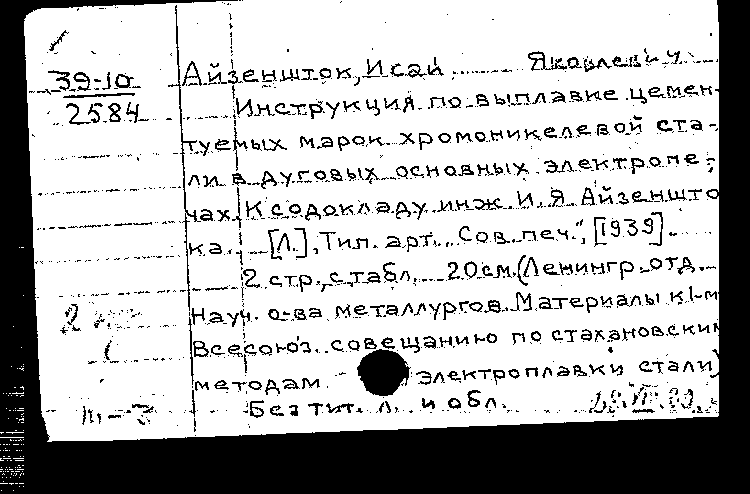 39-10
2584
Айзеншток, Исай Яковлевич
Инструкция по выплавке цемен-
туемых марок хромоникелевой ста-
ли в дуговых основных электропе-
чах. К содокладу инж. И. Я. Айзеншто
ка. [Л.], Тип. арт. „Сов. печ.", [1939].
2 стр., с табл. 20 см. (Ленингр. отд.
Науч. о-ва металлургов. Материалы к I-м
Всесоюз. совещанию по стахановским
методам электроплавки стали)
Без тит. л. и обл.